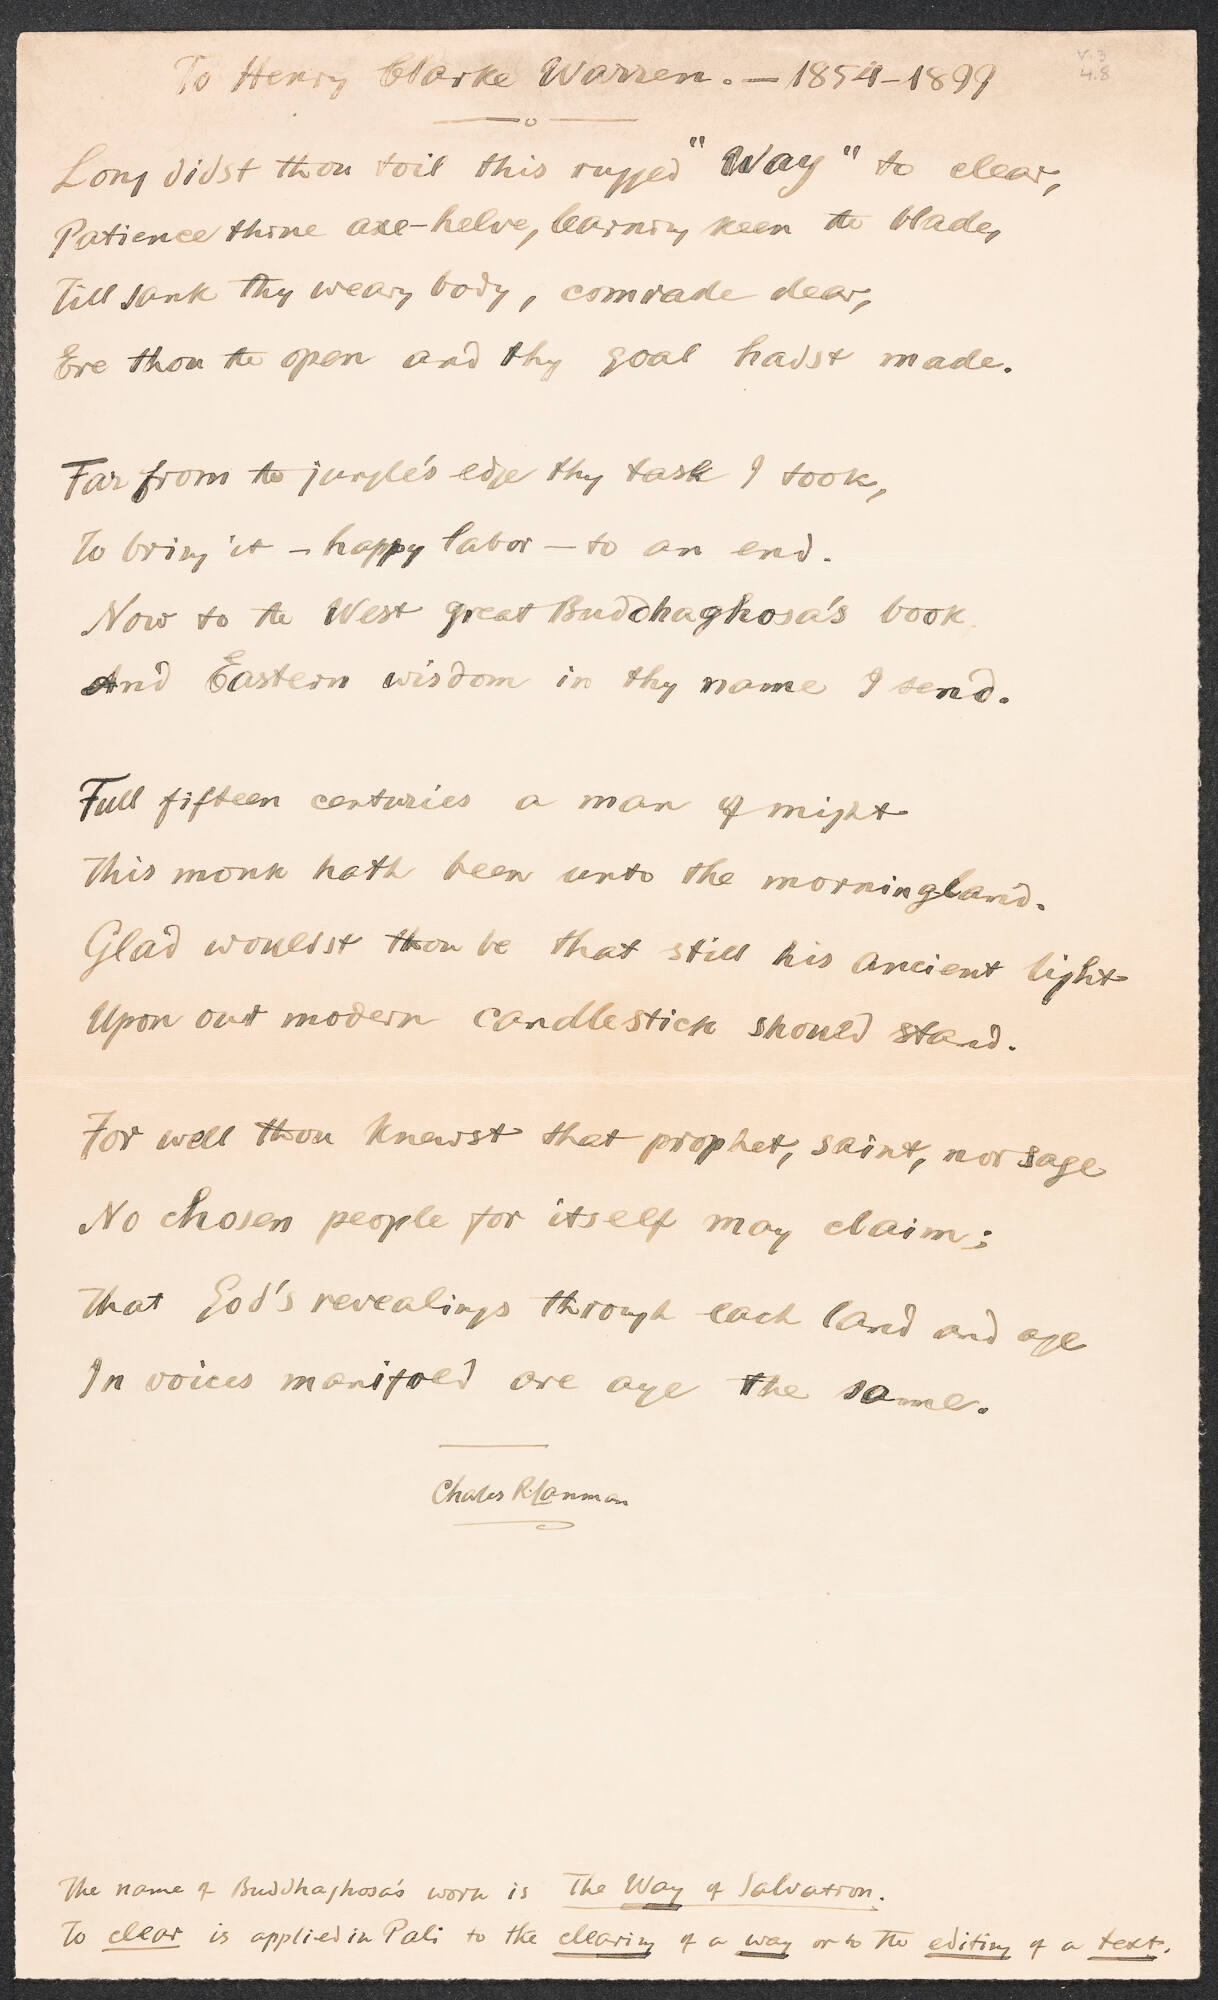 To Henry Clarke Warren. — 1854–1899
V.3
4.8
Long didst thou toil this rugged "Way" to clear,
Patience thine axe-helve, learning keen the blade,
Till sank thy weary body, comrade dear,
Ere thou the open and thy goal hadst made.
Far from the jungle's edge thy task I took,
To bring it – happy labor – to an end.
Now to the West great Buddhaghosa's book
And Eastern wisdom in thy name I send.
Full fifteen centuries a man of might
This monk hath been unto the morningland.
Glad wouldst thou be that still his ancient light
Upon our modern candlestick should stand.
For well thou knewst that prophet, saint, nor sage
No chosen people for itself may claim;
That God's revealings through each land and age
In voices manifold are aye the same.
Charles R. Lanman
The name of Buddhaghosa's work is The Way of Salvation.
To clear is applied in Pali to the clearing of a way or to the editing of a text.